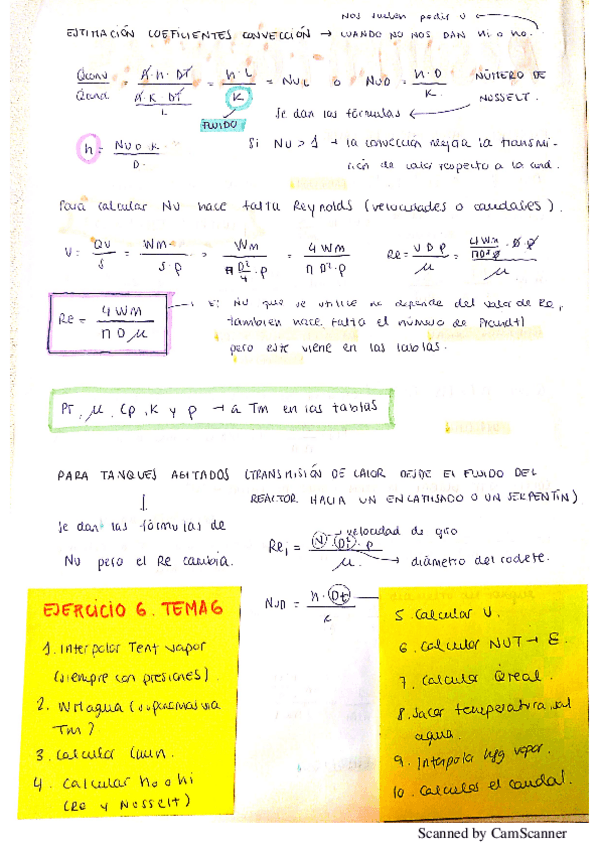 Nos suelen pedir U
ESTIMACIÓN COEFICIENTES CONVECCIÓN → CUANDO NO NOS DAN hi o ho.
Qconv / Qcond = A·h·DT / (A·K·DT / L) = h·L / K = NuL o NuD = h·D / K NÚMERO DE NUSSELT.
FLUIDO
Se dan las fórmulas
h = NuD·K / D
Si Nu > 1 → la convección regula la transmi-
sión de calor respecto a la cond.
Para calcular Nu hace falta Reynolds (velocidades o caudales).
U = Qv / S = Wm / S·ρ = Wm / (π D²/4 · ρ) = 4Wm / π D²·ρ Re = U D ρ / μ = (4Wm / π D² ρ · D ρ) / μ
Re = 4Wm / π D μ
→ El Nu que se utilice depende del valor de Re,
también hace falta el número de Prandtl
pero este viene en las tablas.
Pr, μ, Cp, K y ρ → a Tm en las tablas
PARA TANQUES AGITADOS (TRANSMISIÓN DE CALOR DESDE EL FLUIDO DEL
REACTOR HACIA UN ENCAMISADO O UN SERPENTÍN)
Se dan las fórmulas de
Nu pero el Re cambia.
Rei = N·Di²·ρ / μ
velocidad de giro
diámetro del rodete.
NuD = h·Dt / K
EJERCICIO 6. TEMA 6
1. Interpolar Tent vapor
(siempre con presiones).
2. Wm agua (suponemos una
Tm?
3. Calcular Cmin.
4. Calcular ho o hi
(Re y Nosselt)
5. Calcular U.
6. Calcular NUT → ε.
7. Calcular Qreal.
8. Sacar temperatura sal
agua.
9. Interpolar hfg vapor.
10. Calculas el caudal.
Scanned by CamScanner